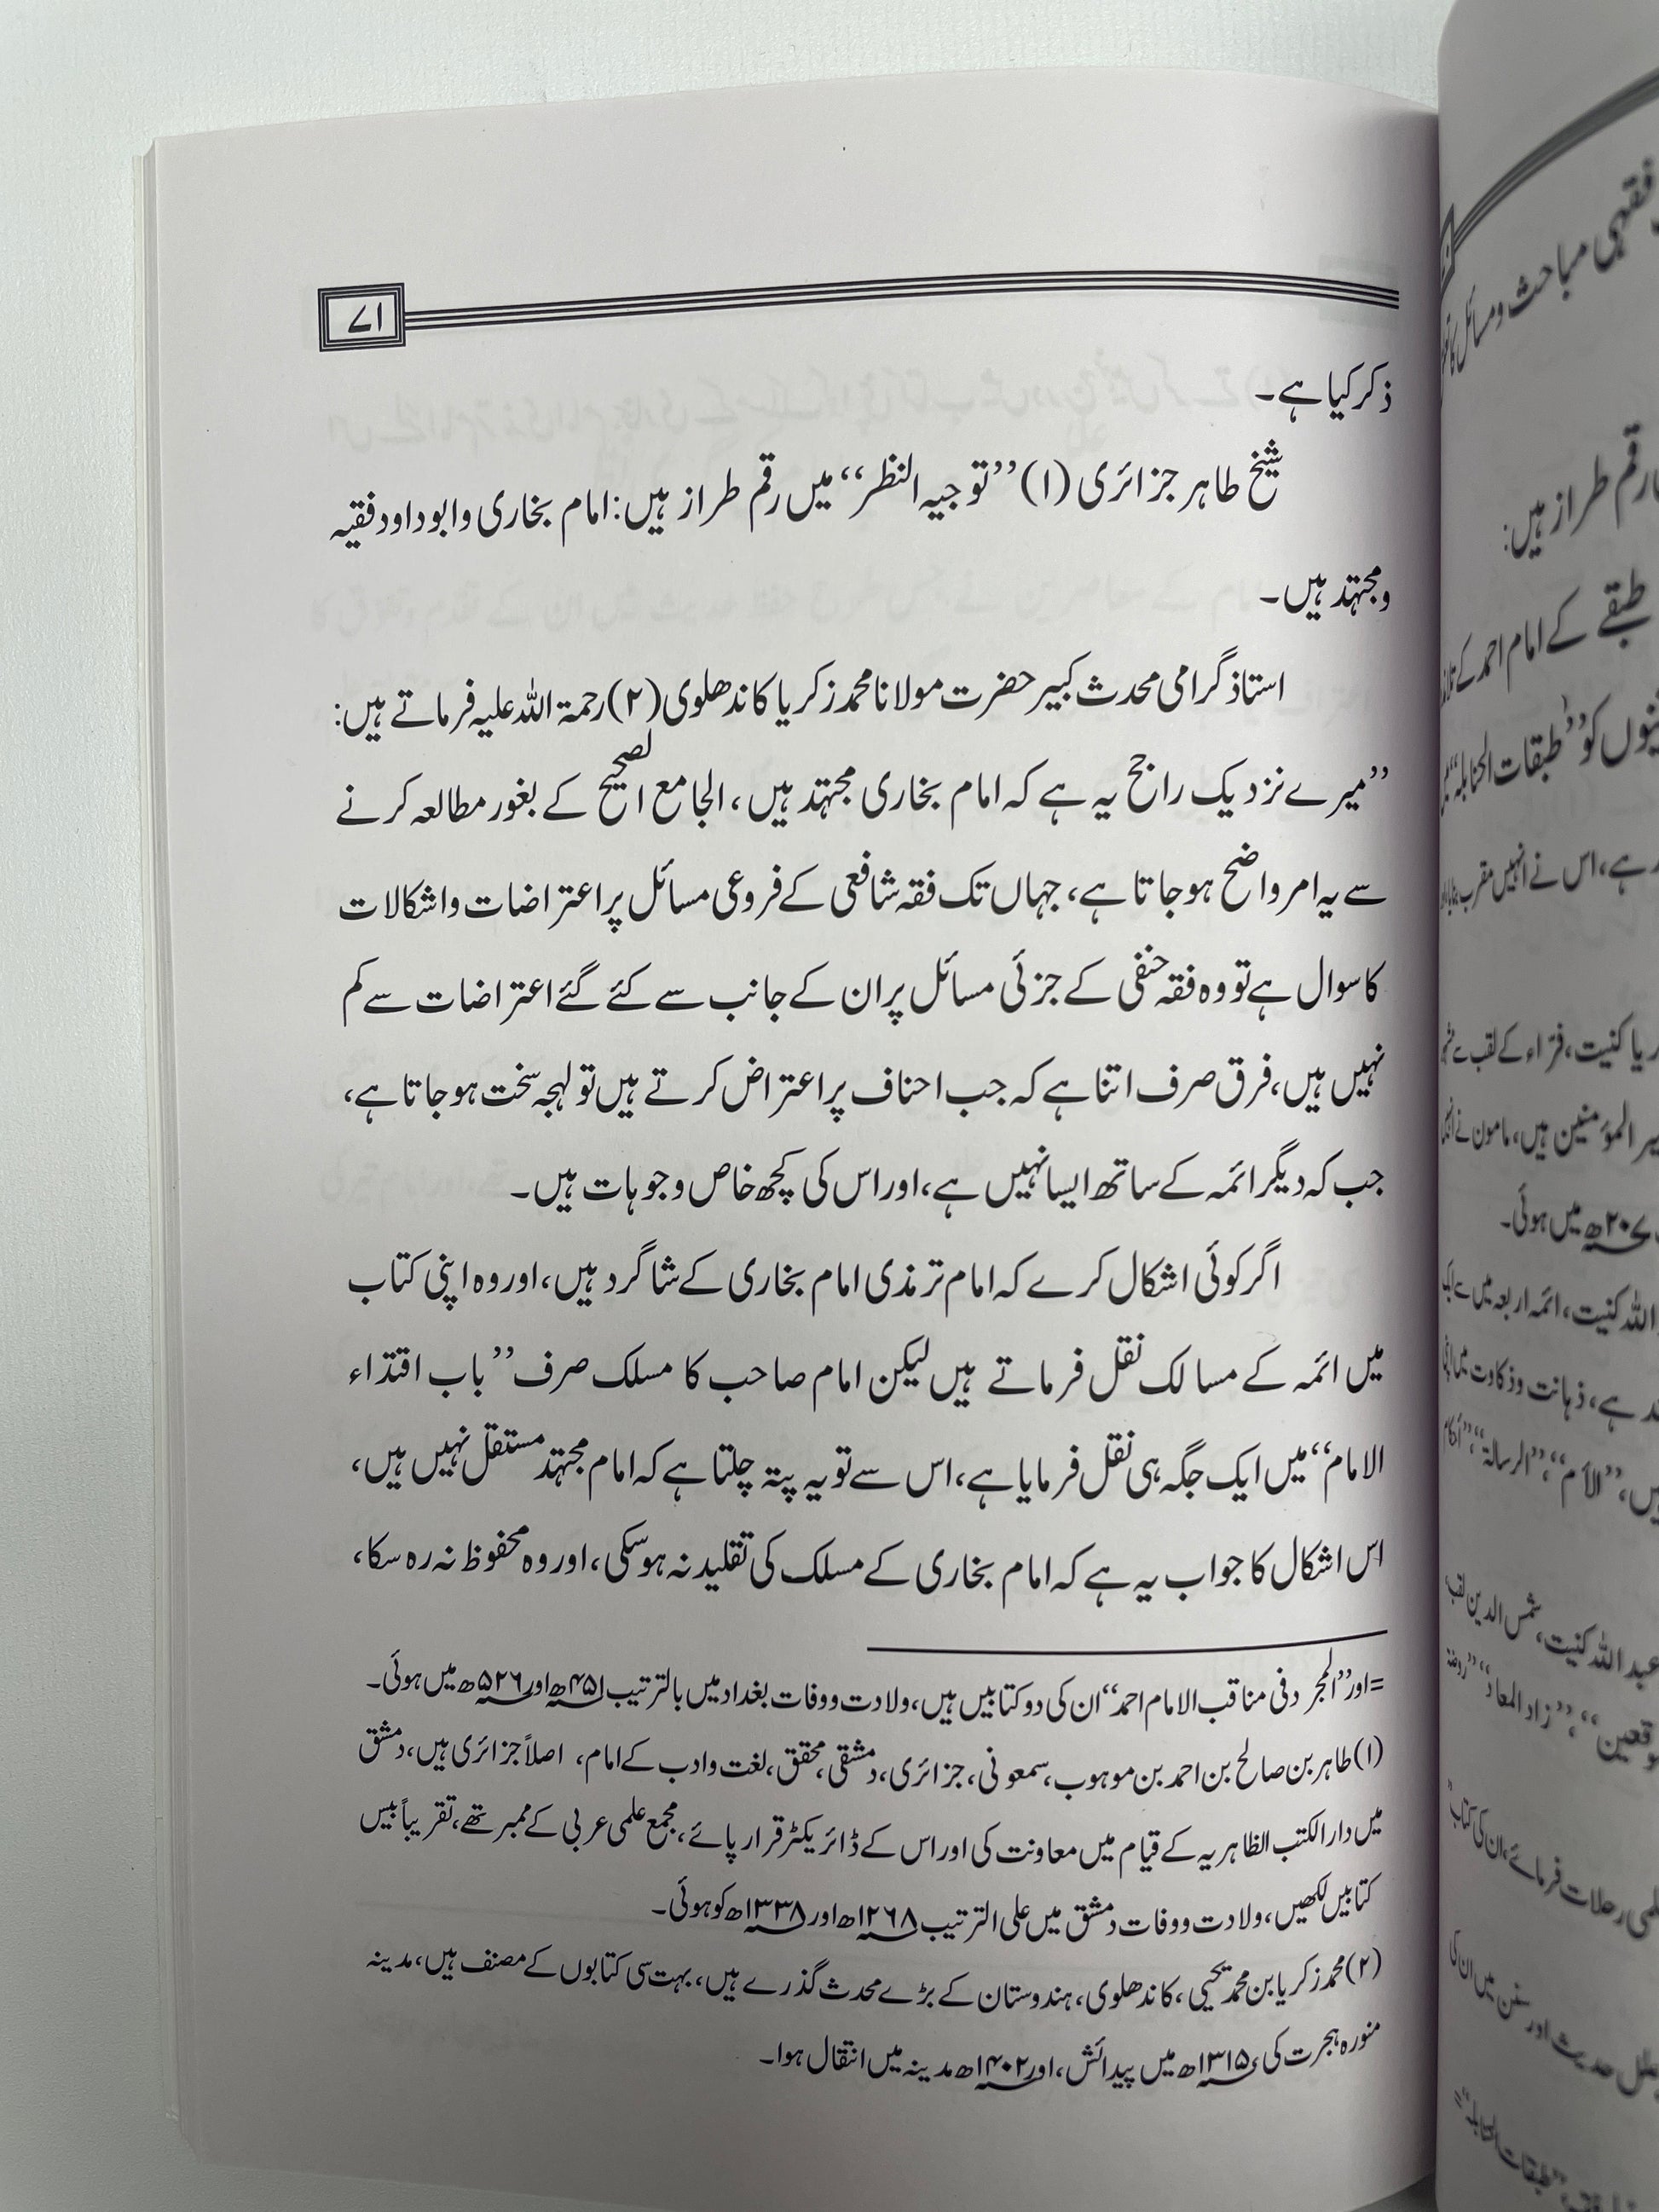 ۷۱
ذکر کیا ہے۔
شیخ طاہر جزائری (۱) ”توجیہ النظر“ میں رقم طراز ہیں: امام بخاری وابوداود فقیہ
ومجتہد ہیں۔
استاذ گرامی محدث کبیر حضرت مولانا محمد زکریا کاندھلوی (۲) رحمۃ اللہ علیہ فرماتے ہیں:
”میرے نزدیک راجح یہ ہے کہ امام بخاری مجتہد ہیں، الجامع الصحیح کے بغور مطالعہ کرنے
سے یہ امر واضح ہوجاتا ہے، جہاں تک فقہ شافعی کے فروعی مسائل پر اعتراضات واشکالات
کا سوال ہے تو وہ فقہ حنفی کے جزئی مسائل پر ان کے جانب سے کئے گئے اعتراضات سے کم
نہیں ہیں، فرق صرف اتنا ہے کہ جب احناف پر اعتراض کرتے ہیں تو لہجہ سخت ہوجاتا ہے،
جب کہ دیگر ائمہ کے ساتھ ایسا نہیں ہے، اور اس کی کچھ خاص وجوہات ہیں۔
اگر کوئی اشکال کرے کہ امام ترمذی امام بخاری کے شاگرد ہیں، اور وہ اپنی کتاب
میں ائمہ کے مسالک نقل فرماتے ہیں لیکن امام صاحب کا مسلک صرف ”باب اقتداء
الامام“ میں ایک جگہ ہی نقل فرمایا ہے، اس سے تو یہ پتہ چلتا ہے کہ امام مجتہد مستقل نہیں ہیں،
اس اشکال کا جواب یہ ہے کہ امام بخاری کے مسلک کی تقلید نہ ہوسکی، اور وہ محفوظ نہ رہ سکا،
= اور ”المجرد فی مناقب الامام احمد“ ان کی دو کتابیں ہیں، ولادت ووفات بغداد میں بالترتیب ۴۵۱ھ اور ۵۲۶ھ میں ہوئی۔
(۱) طاہر بن صالح بن احمد بن موہوب، سمعونی، جزائری، دمشقی، محقق، لغت وادب کے امام، اصلاً جزائری ہیں، دمشق
میں دار الکتب الظاہریہ کے قیام میں معاونت کی اور اس کے ڈائریکٹر قرار پائے، مجمع علمی عربی کے ممبر تھے، تقریباً بیس
کتابیں لکھیں، ولادت ووفات دمشق میں علی الترتیب ۱۲۶۸ھ اور ۱۳۳۸ھ کو ہوئی۔
(۲) محمد زکریا بن محمد یحییٰ، کاندھلوی، ہندوستان کے بڑے محدث گذرے ہیں، بہت سی کتابوں کے مصنف ہیں، مدینہ
منورہ ہجرت کی، ۱۳۱۵ھ میں پیدائش، اور ۱۴۰۲ھ مدینہ میں انتقال ہوا۔
فقہی مباحث ومسائل کا
رقم طراز ہیں:
طبقے کے امام احمد کے
کو ”طبقات الحنابلہ“
ہے، اس نے انہیں مقرب
کنیت، فراء کے لقب سے
المؤمنین ہیں، مامون نے
۲۰۷ھ میں ہوئی۔
اللہ کنیت، ائمہ اربعہ میں سے ایک
ہے، ذہانت وذکاوت میں
”الأم“، ”الرسالۃ“،
عبد اللہ کنیت، شمس الدین لقب
”زاد المعاد“
رحلات فرمائے، ان کی
حدیث اور سنن میں ان کی
”طبقات الحنابلہ“ =